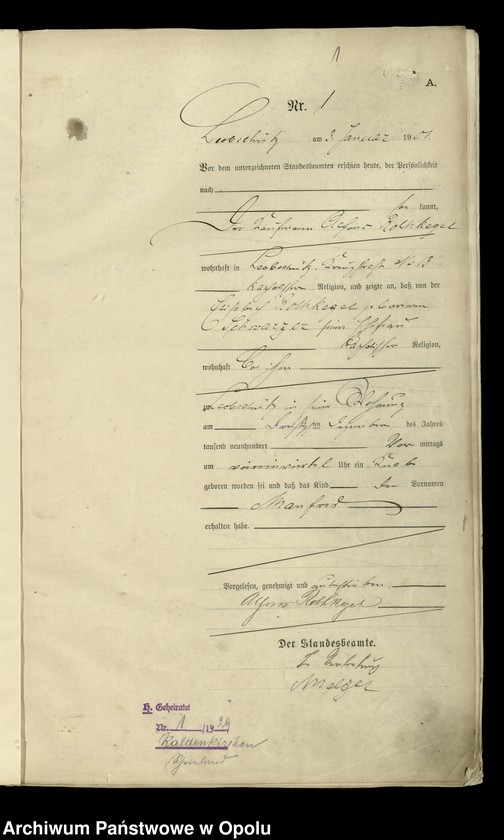 1
A.
Nr. 1
Leobschütz am 3. Januar 1901.
Vor dem unterzeichneten Standesbeamten erschien heute, der Persönlichkeit
nach
be kannt,
Der Kaufmann Alfons Rothkegel
wohnhaft in Leobschütz
katholischer Religion, und zeigte an, daß von der
Elisabeth Rothkegel geborenen
Schwarzer seiner Ehefrau
katholischer Religion,
wohnhaft bei ihm
zu Leobschütz in seiner Wohnung
am Dezember des Jahres
tausend neunhundert Vor mittags
um Uhr ein Knabe
geboren worden sei und daß das Kind den Vornamen
Manfred
erhalten habe.
Vorgelesen, genehmigt und unterschrieben
Alfons Rothkegel
Der Standesbeamte.
In Vertretung
H. Geheiratet
Nr. 1 /1929
Kaldenkirchen
Rheinland
Archiwum Państwowe w Opolu